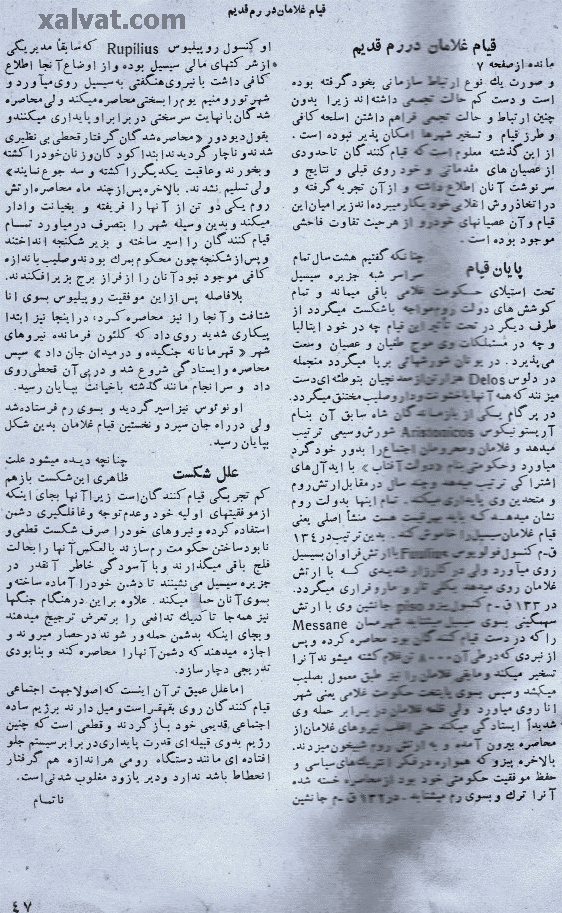 xalvat.com
قیام غلامان در رم قدیم
قیام غلامان در رم قدیم
مانده از صفحه ۷
و صورت یك نوع ارتباط سازمانی بخود گرفته بوده
است و دست کم حالت تجمعی داشته‌اند زیرا بدون
چنین ارتباط و حالت تجمعی فراهم داشتن اسلحه کافی
و طرز قیام و تسخیر شهرها امکان پذیر نبوده است .
از این گذشته معلوم است که قیام کنندگان تاحدودی
از عصیان های مقدماتی و خود روی قبلی و نتایج و
سرنوشت آنان اطلاع داشته و از آن تجربه گرفته و
در اتخاذ روش انقلابی خود بکار میبرده‌اند زیرا میان این
قیام و آن عصیانهای خودرو از هر حیث تفاوت فاحشی
موجود بوده است .
پایان قیام
چنانکه گفتیم هشت سال تمام
سراسر شبه جزیره سیسیل
تحت استیلای حکومت غلامی باقی میماند و تمام
کوشش های دولت روم مواجه باشکست میگردد از
طرف دیگر در تحت تأثیر این قیام چه در خود ایتالیا
و چه در مستملکات وی موج طغیان و عصیان وسعت
می‌پذیرد . در یونان شورشهائی برپا میگردد منجمله
در دلوس Delos هزار تن از معدنچیان بتوطئه‌ای دست
میزنند که همه آنها باخشونت و دار و صلیب مختنق میگردد.
در پرگام یکی از بازماندگان شاه سابق آن بنام
آریستونیکوس Aristonicos شورش وسیعی ترتیب
میدهد و غلامان و محرومان اجتماع را بدور خود گرد
میآورد و حکومتی بنام «دولت آفتاب» با ایده‌آل‌های
اشتراکی ترتیب چند سال در مقابل ارتش روم
و متحدین وی پایداری میکند . تمام اینها بدولت روم
نشان میدهد که باید بهر قیمت هست منشأ اصلی یعنی
قیام غلامان سیسیل را خاموش کند . بدین ترتیب در ۱۳۴
ق-م کنسول فولویوس با ارتش فراوان بسیسیل
روی میآورد ولی در کارزار شدیدی که با ارتش
غلامان روی میدهد یکی تار و مار و فراری میگردد.
در ۱۳۳ ق-م کنسول پیزو piso جانشین وی با ارتش
سهمگینی بسوی سیسیل میشتابد شهر مسان Messane
را که در دست قیام کنندگان بود محاصره کرده و پس
از نبردی که در طی آن ۸۰۰۰ تن غلام کشته میشوند آنرا
تسخیر میکند و مابقی غلامان را نیز طبق معمول بصلیب
میکشد و سپس بسوی پایتخت حکومت غلامی یعنی شهر
انا روی میآورد ولی قلعه غلامان در برابر حمله وی
شدیداً ایستادگی میکند حتی اغلب نیروهای غلامان از
محاصره بیرون آمده و به ارتش روم شبیخون میزدند.
بالاخره پیزو که همواره در فکر انتریك‌های سیاسی و
حفظ موفقیت حکومتی خود بود از محاصره خسته شده
آنرا ترك و بسوی رم میشتابد . در ۱۳۲ ق-م جانشین
او کنسول روپیلیوس Rupilius که سابقاً مدیر یکی
از شرکتهای مالی سیسیل بوده و از اوضاع آنجا اطلاع
کافی داشت با نیروی هنگفتی به سیسیل روی میآورد و
شهر تورومنیوم را بسختی محاصره میکند ولی محاصره
شدگان با نهایت سرسختی در برابر او پایداری میکنند و
بقول دیودور «محاصره شدگان گرفتار قحطی بی نظیری
شدند و ناچار گردیدند ابتدا کودکان و زنان خود را کشته
و بخورند و عاقبت یکدیگر را کشته و سد جوع نمایند»
ولی تسلیم نشدند . بالاخره پس از چند ماه محاصره ارتش
روم یکی دو تن از آنها را فریفته و بخیانت وادار
میکند و بدین وسیله شهر را بتصرف در میآورد تمام
قیام کنندگان را اسیر ساخته و بزیر شکنجه انداختند
و پس از شکنجه چون محکوم بمرك بودند و صلیب باندازه
کافی موجود نبود آنان را از فراز برج بزیر افکندند.
بلافاصله پس از این موفقیت روپیلیوس بسوی انا
شتافت و آنجا را نیز محاصره کرد، در اینجا نیز ابتدا
پیکاری شدید روی داد که کلئون فرمانده نیروهای
شهر «قهرمانانه جنگیده و در میدان جان داد» سپس
محاصره و ایستادگی شروع شد و در پی آن قحطی روی
داد و سرانجام مانند گذشته باخیانت بپایان رسید.
او نوئوس نیز اسیر گردید و بسوی رم فرستاده شد
ولی در راه جان سپرد و نخستین قیام غلامان بدین شکل
بپایان رسید.
علل شکست
چنانچه دیده میشود علت
ظاهری این شکست باز هم
کم تجربگی قیام کنندگان است زیرا آنها بجای اینکه
از موفقیتهای اولیه خود و عدم توجه و غافلگیری دشمن
استفاده کرده و نیروهای خود را صرف شکست قطعی و
نابود ساختن حکومت رم سازند بالعکس آنها را بحالت
فلج باقی میگذارند و با آسودگی خاطر آنقدر در
جزیره سیسیل می‌نشینند تا دشمن خود را آماده ساخته و
بسوی آنان حمله میکند . علاوه بر این در هنگام جنگها
نیز همه جا تاکتیك تدافعی را بر تعرض ترجیح میدهند
و بجای اینکه بدشمن حمله‌ور شوند در حصار میروند و
اجازه میدهند که دشمن آنها را محاصره کند و بنابودی
تدریجی دچار سازد.
اما علل عمیق تر آن اینست که اصولا جهت اجتماعی
قیام کنندگان روی بقهقراست و میل دارند برژیم ساده
اجتماعی قدیمی خود بازگردند و قطعی است که چنین
رژیم بدوی قبیله‌ای قدرت پایداری در برابر سیستم جلو
افتاده‌ای مانند دستگاه رومی هر اندازه هم گرفتار
انحطاط باشد ندارد و دیر یا زود مغلوب شدنی است.
ناتمام
٤٧